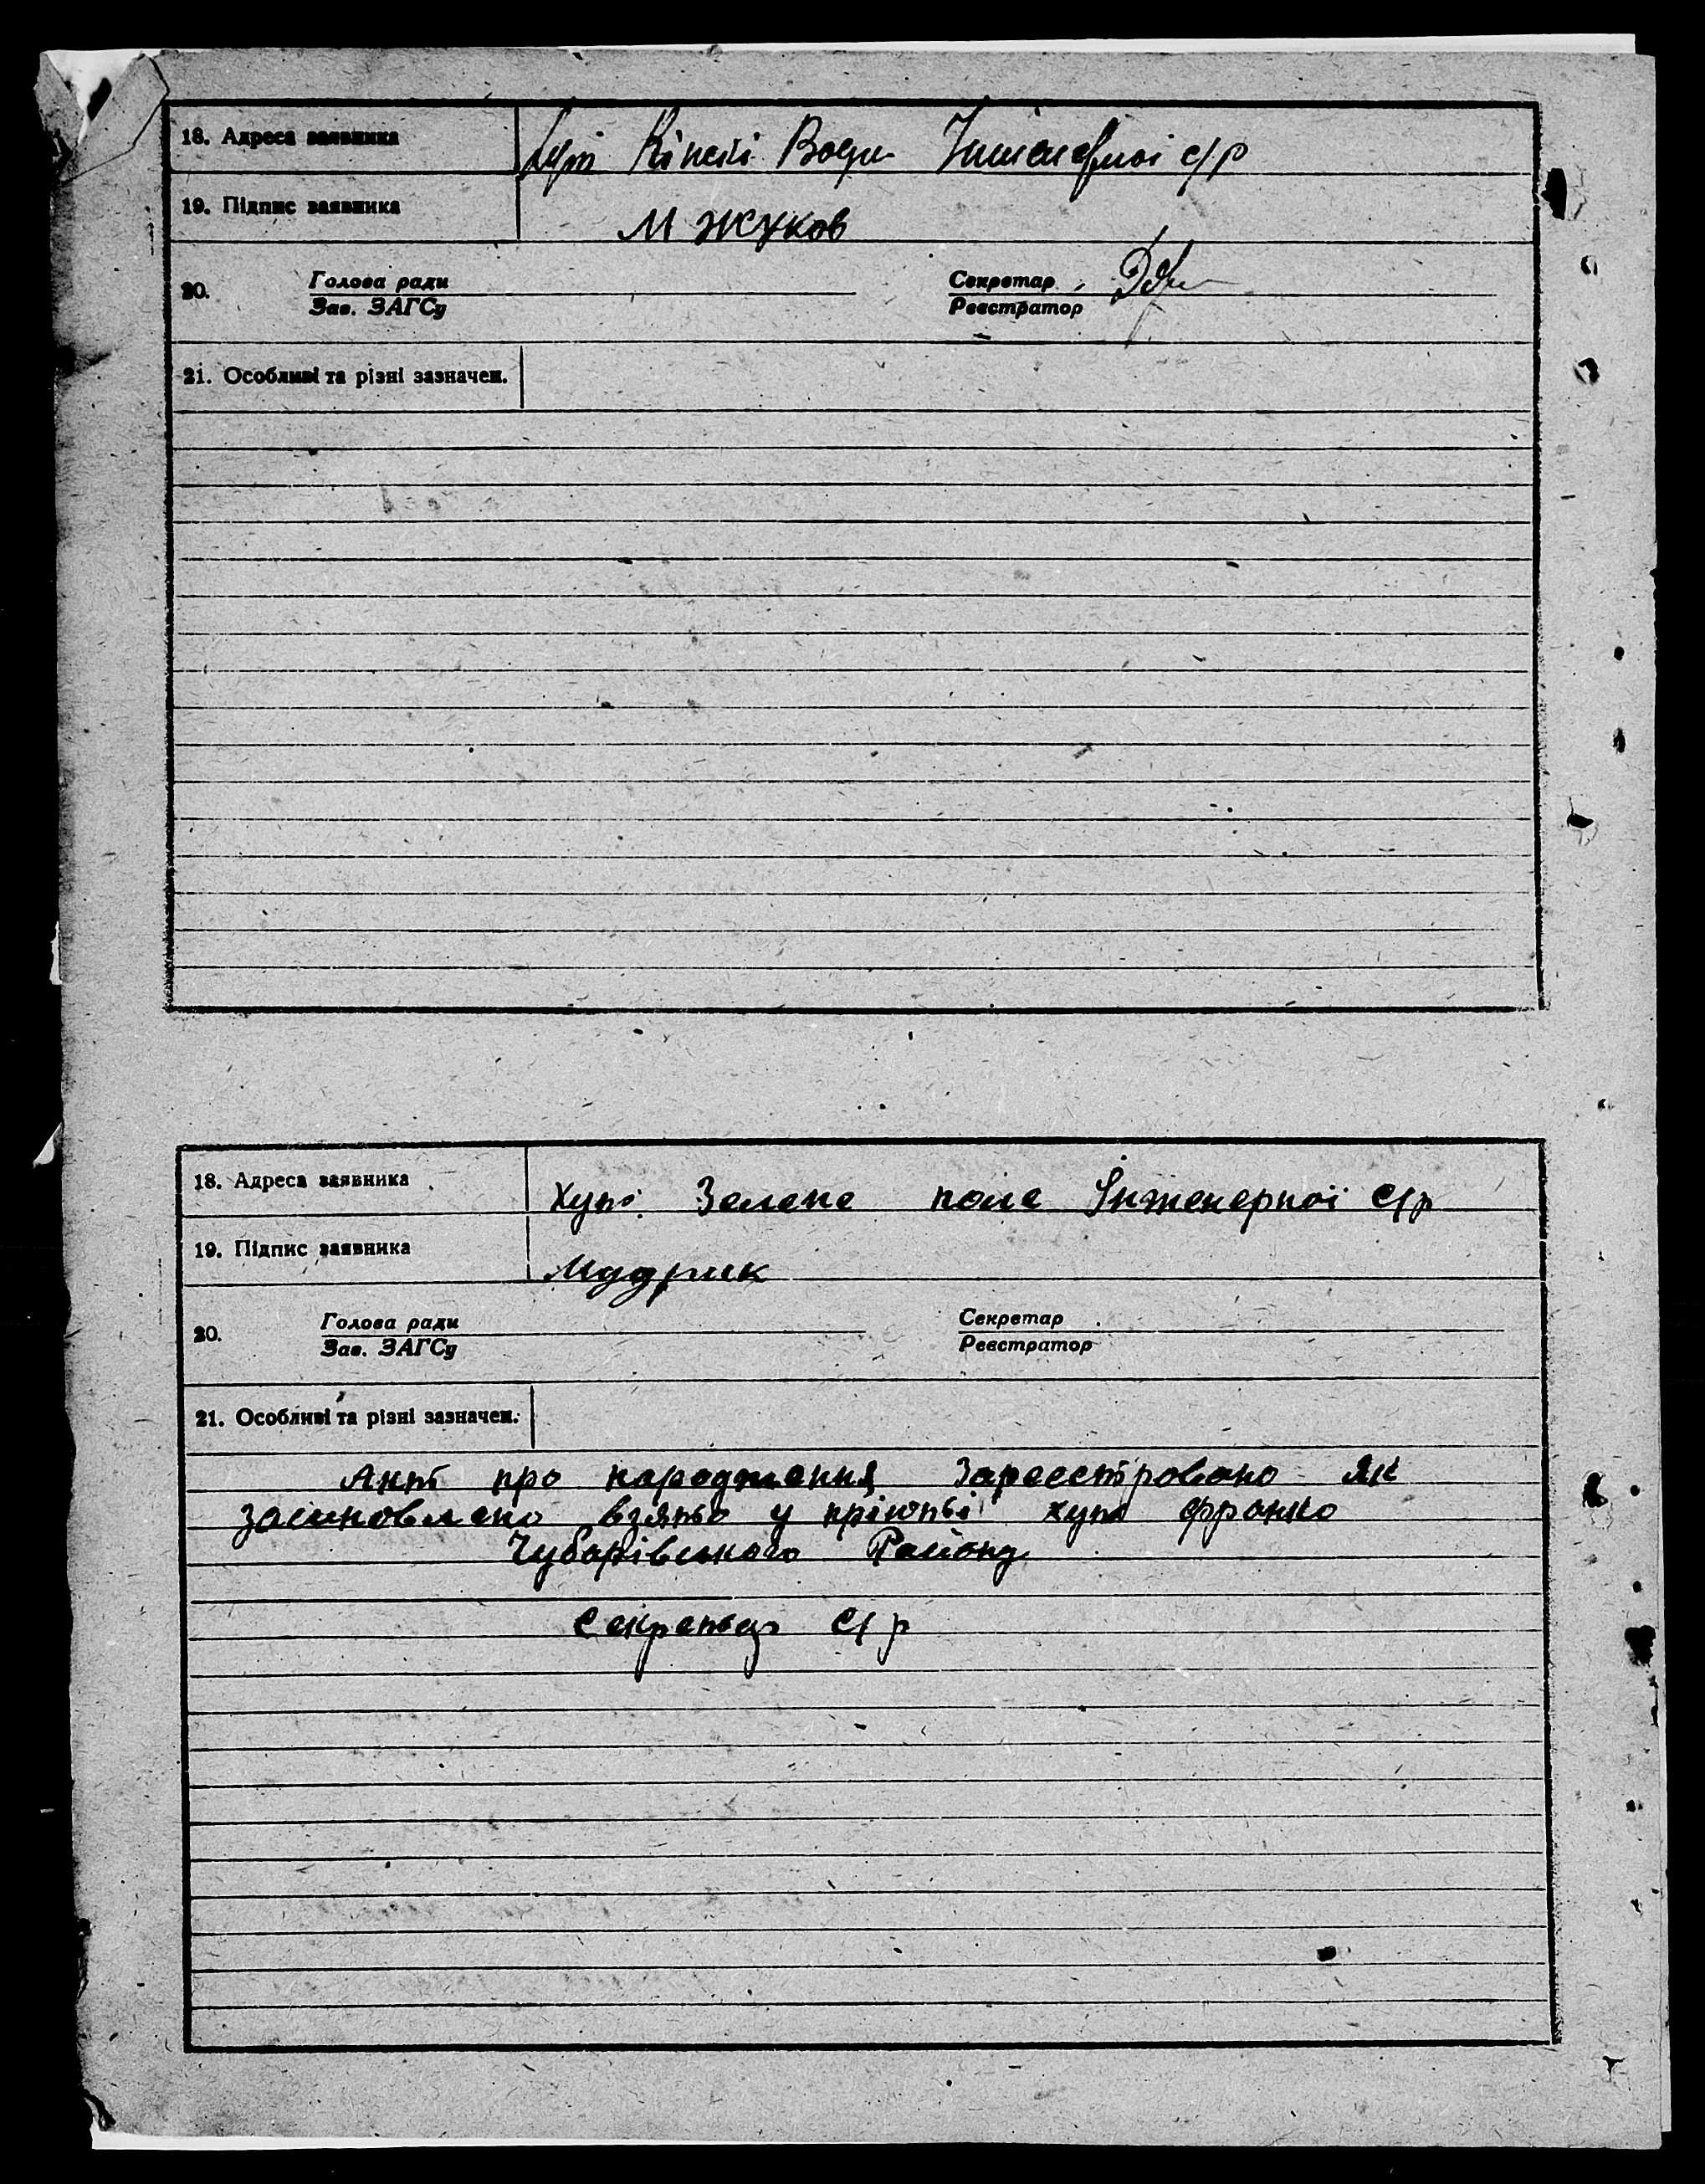 18. Адреса заявника Хут Кінскі Води Інженерної с/р
19. Підпис заявника М Жуков
20. Голова ради Секретар
Зав. ЗАГСу Реєстратор
21. Особливі та різні зазначен.
18. Адреса заявника Хут. Зелене поле Інженерної с/р
19. Підпис заявника Мудрик
20. Голова ради Секретар
Зав. ЗАГСу Реєстратор
21. Особливі та різні зазначен.
Акт про народження Зареєстровано як
засиновлено взято у пріюті хут Франко
Чубарівського Району
Секретар с/р